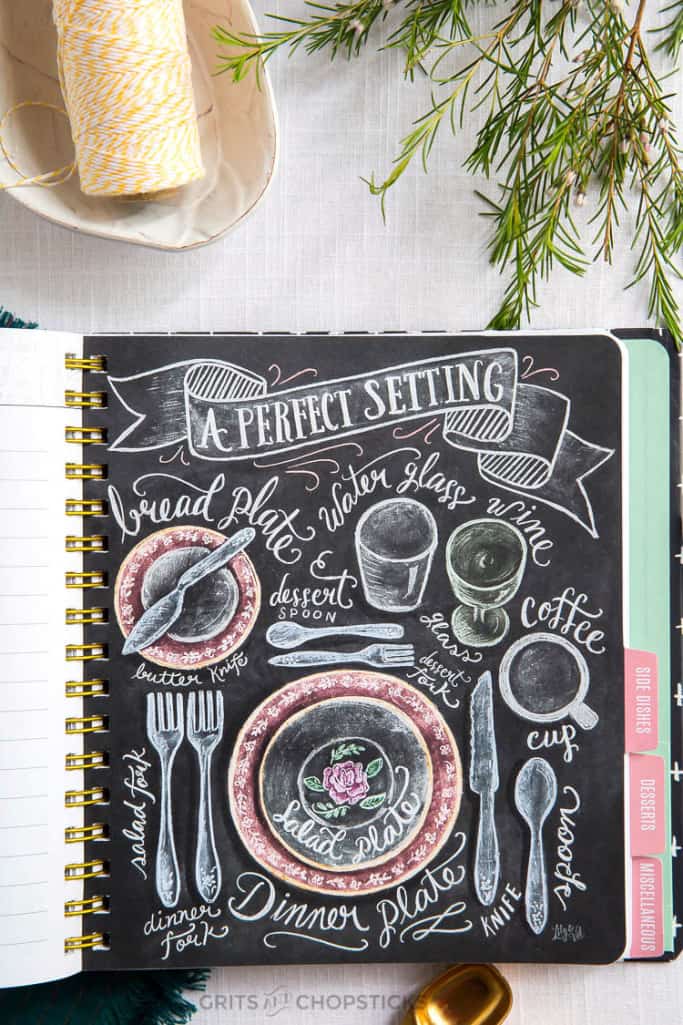 A PERFECT SETTING
bread plate
water glass
wine
glass
& dessert
SPOON
dessert
fork
coffee
cup
butter knife
salad fork
dinner
fork
salad plate
Dinner plate
KNIFE
spoon
SIDE DISHES
DESSERTS
MISCELLANEOUS
GRITS AND CHOPSTICKS